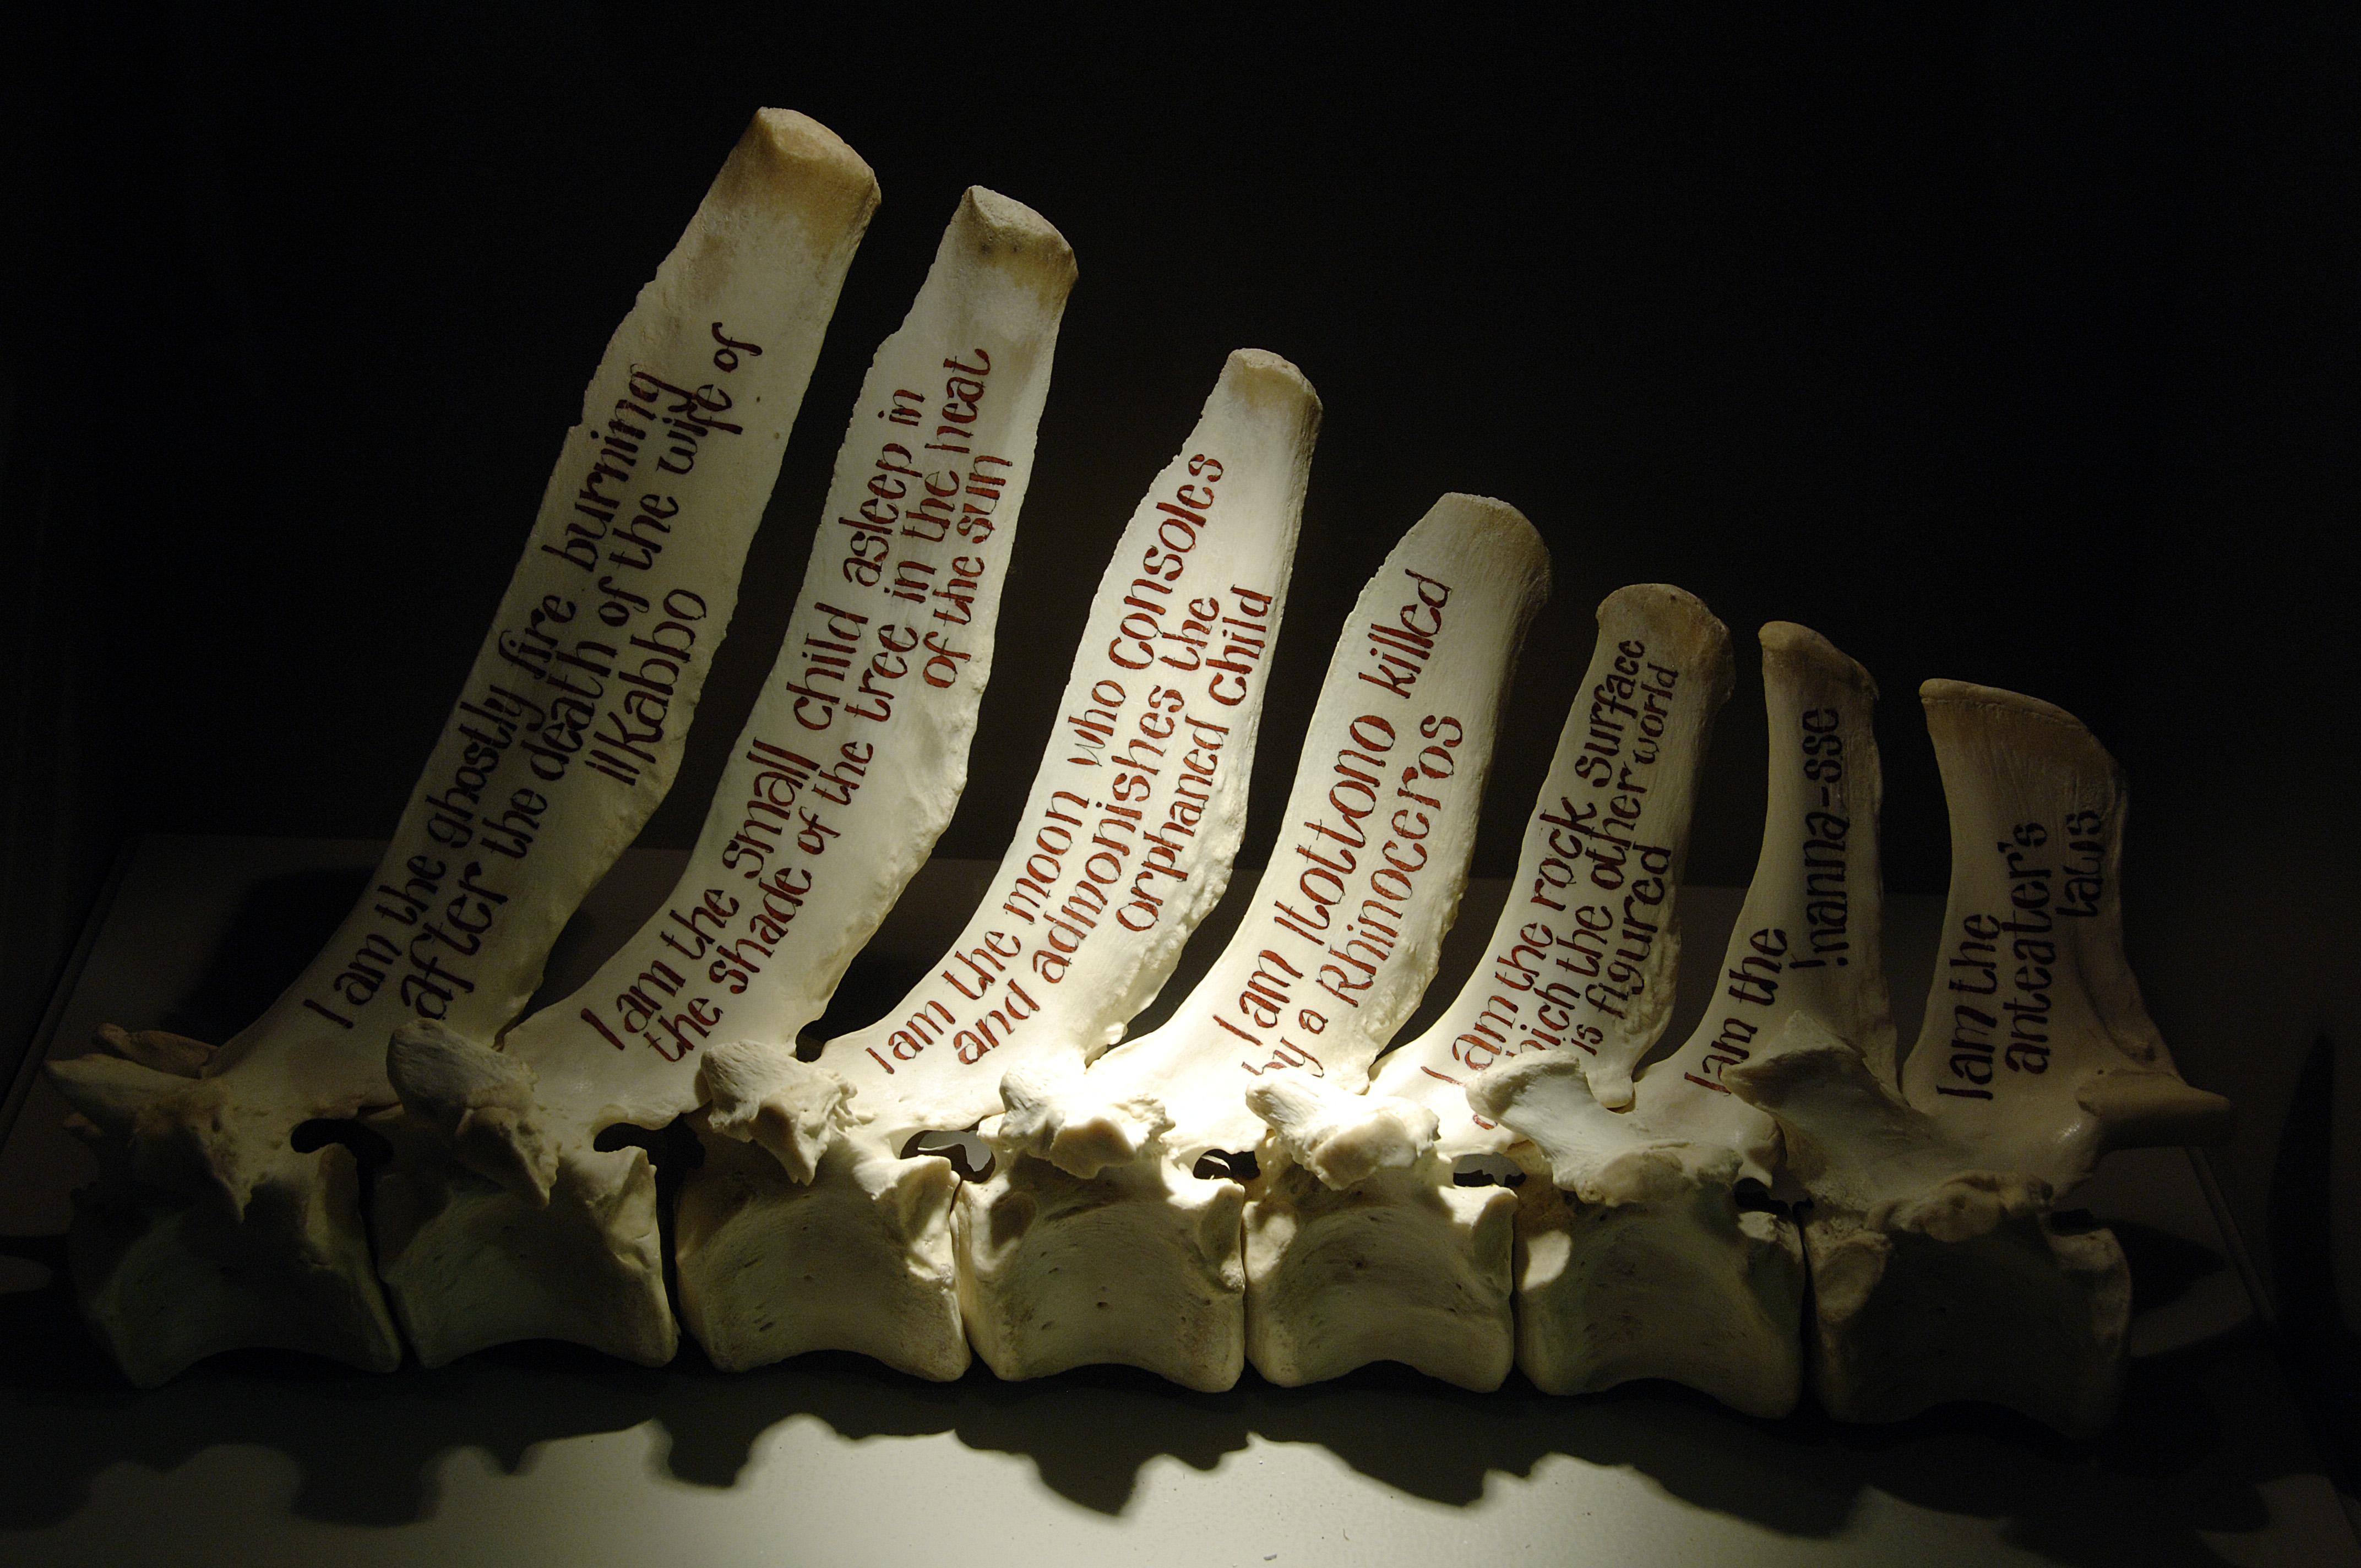 I am the ghostly fire burning
after the death of the wife of
||Kabbo
I am the small child asleep in
the shade of the tree in the heat
of the sun
I am the moon who consoles
and admonishes the
orphaned child
I am |tottono killed
by a Rhinoceros
I am the rock surface
which the other world
is figured
I am the
!nanna-sse
I am the
anteater's
laws